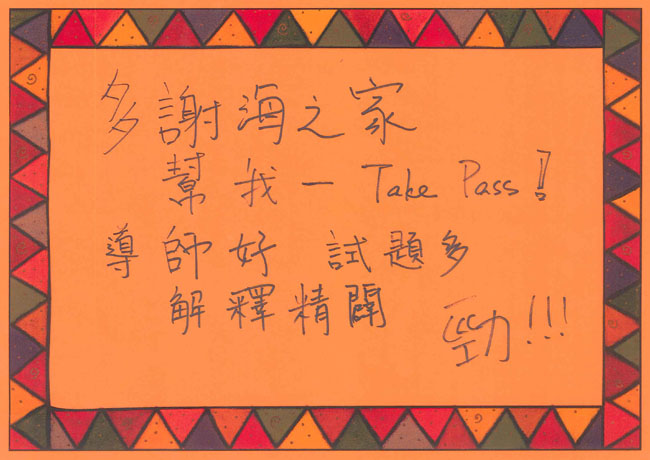 多謝海之家
幫我一 Take Pass!
導師好 試題多
解釋精闢
勁!!!